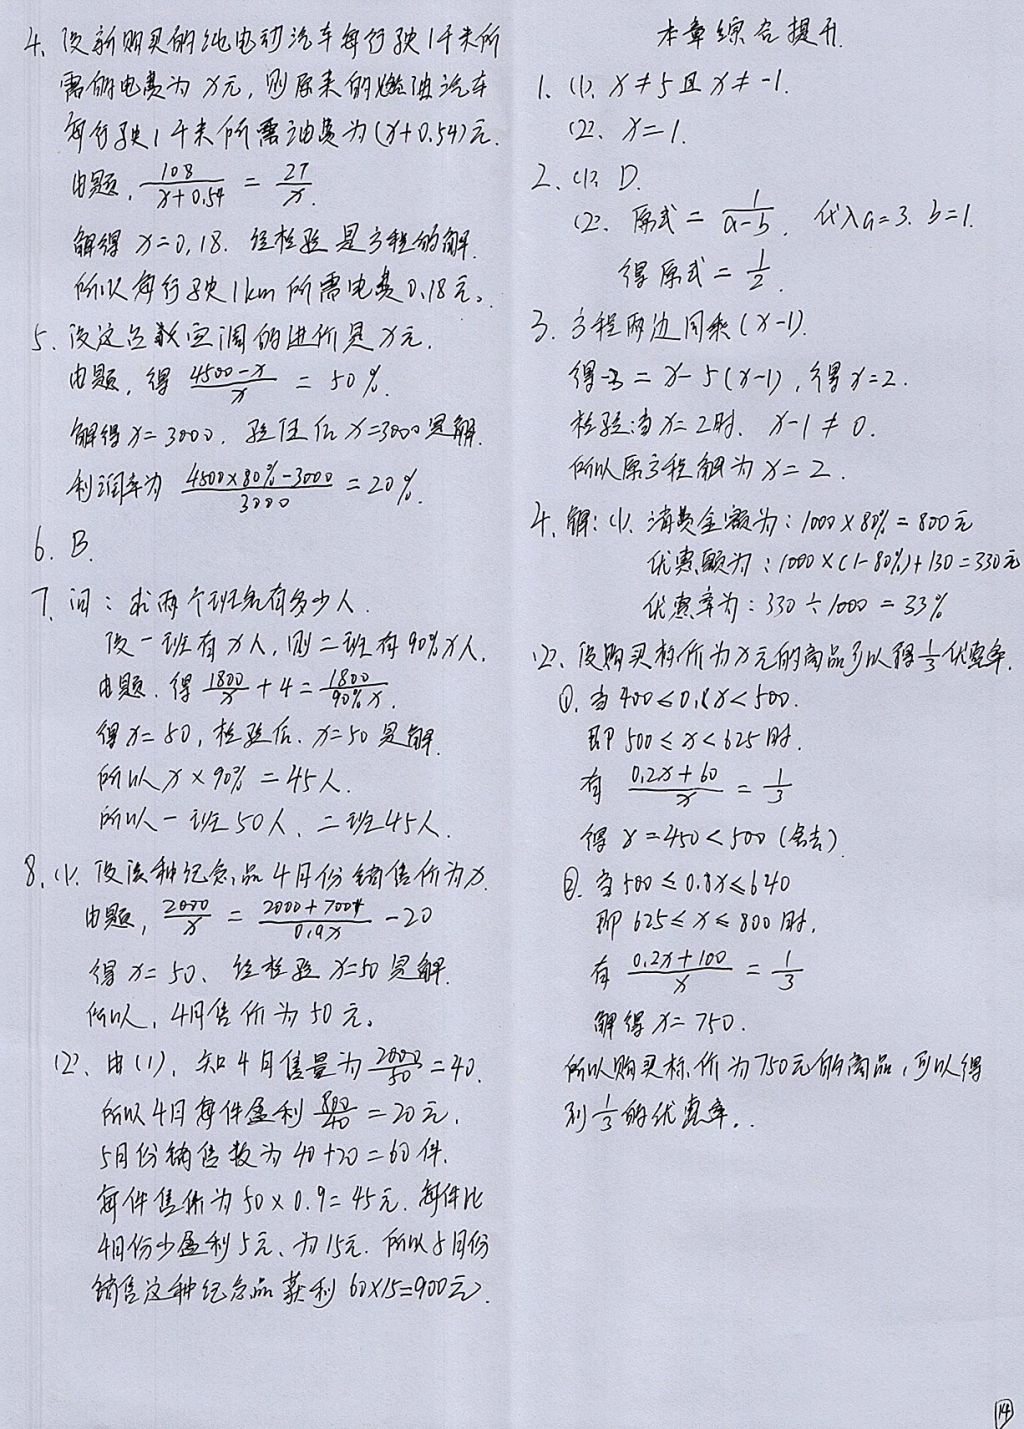 4、设新购买的纯电动汽车每行驶1千米所
需的电费为x元，则原来的燃油汽车
每行驶1千米所需油费为(x+0.54)元.
由题， 108/(x+0.54) = 27/x.
解得 x=0.18. 经检验是方程的解.
所以每行驶1km所需电费0.18元。
5、设这台数空调的进价是x元.
由题，得 (4500-x)/x = 50%.
解得x=3000, 验证后x=3000是解.
利润率为 (4500×80%-3000)/3000 = 20%.
6. B.
7、问：求两个班各有多少人.
设一班有x人，则二班有90%x人.
由题. 得 1800/x + 4 = 1800/(90%x).
得x=50, 检验后. x=50是解.
所以 x×90% = 45人.
所以一班50人、二班45人.
8、(1). 设该种纪念品4月份销售价为x.
由题， 2000/x = (2000+700)/(0.9x) - 20
得x=50、经检验x=50是解.
所以，4月售价为50元。
(2)、由(1)、知4月售量为 2000/50 = 40.
所以4月每件盈利 800/40 = 20元.
5月份销售数为40+20=60件.
每件售价为50×0.9=45元. 每件比
4月份少盈利5元、为15元. 所以5月份
销售这种纪念品获利60×15=900元.
本章综合提升.
1、(1). x≠5且x≠-1.
(2). x=1.
2、(1). D.
(2). 原式 = 1/(a-b). 代入a=3. b=1.
得原式 = 1/2.
3. 方程两边同乘(x-1).
得-3 = x-5(x-1), 得x=2.
检验:当x=2时. x-1≠0.
所以原方程解为x=2.
4、解：(1). 消费金额为：1000×80%=800元
优惠额为：1000×(1-80%)+130=330元
优惠率为：330÷1000=33%
(2)、设购买标价为x元的商品可以得1/3优惠率.
①. 当400≤0.8x<500.
即500≤x<625时.
有 (0.2x+60)/x = 1/3
得x=450<500(舍去).
②. 当500≤0.8x≤640
即625≤x≤800时.
有 (0.2x+100)/x = 1/3
解得x=750.
所以购买标价为750元的商品，可以得
到1/3的优惠率.
14